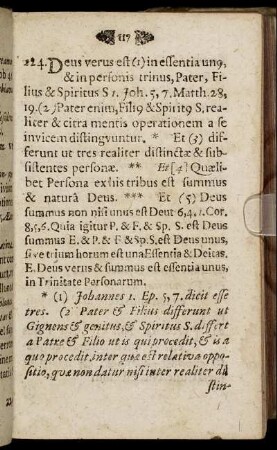 117
124. Deus verus est (1) in essentia unꝰ,
& in personis trinus, Pater, Fi-
lius & Spiritus S 1. Joh. 5, 7. Matth. 28,
19. (2) Pater enim, Filiꝰ & Spiritꝰ S, rea-
liter & citra mentis operationem a se
invicem distingvuntur. * Et (3) dif-
ferunt ut tres realiter distinctæ & sub-
sistentes personæ. ** Et [4] Quæli-
bet Persona ex his tribus est summus
& naturâ Deus. *** Et (5) Deus
summus non nisi unus est Deut 6, 4. 1. Cor.
8, 5, 6. Quia igitur P. & F. & Sp. S. est Deus
summus E. & P. & F & Sp. S. est Deus unus,
sive trium horum est una Essentia & Deitas.
E. Deus verus & summus est essentia unus,
in Trinitate Personarum.
* (1) Johannes 1. Ep. 5, 7. dicit esse
tres. (2 Pater & Filius differunt ut
Gignens & genitus, & Spiritus S. differt
a Patre & Filio ut is qui procedit, & is a
quo procedit, inter quæ est relativa oppo-
sitio, quæ non datur nisi inter realiter di-
stin-